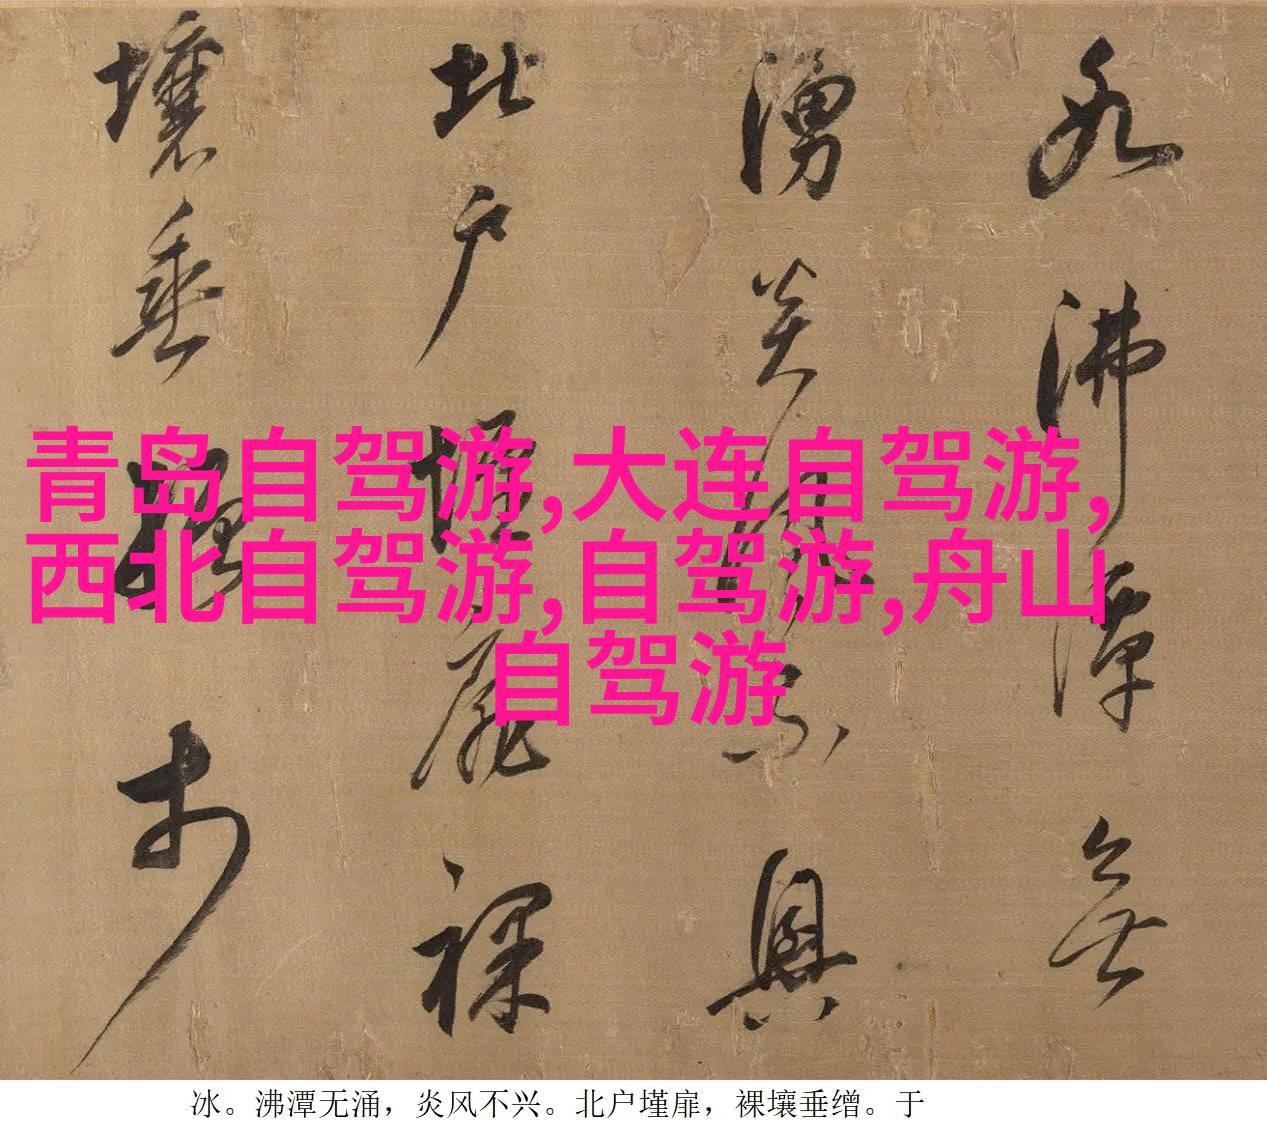 冰沸潭無
湧炎風不興
北户墐扉裸
壤垂繒於
青岛自驾游,大连自驾游,
西北自驾游,自驾游,舟山
自驾游
冰。沸潭无涌，炎风不兴。北户墐扉，裸壤垂缯。于